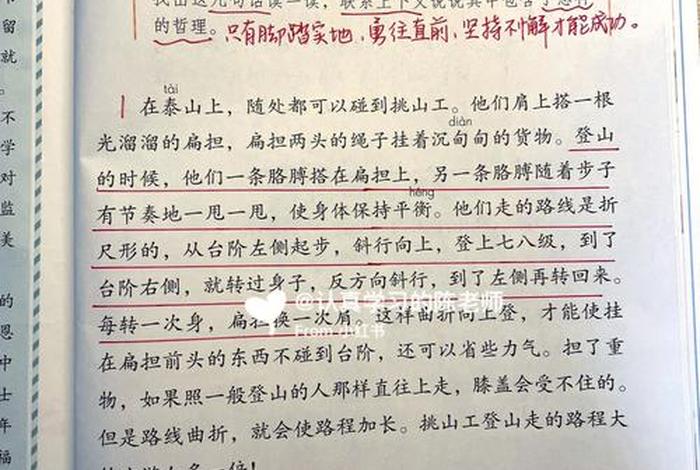 找出这几句话读一读，联系上下文说说其中包含了怎样
的哲理。只有脚踏实地，勇往直前，坚持不懈才能成功。
tài
1 在泰山上，随处都可以碰到挑山工。他们肩上搭一根
diàn
光溜溜的扁担，扁担两头的绳子挂着沉甸甸的货物。登山
的时候，他们一条胳膊搭在扁担上，另一条胳膊随着步子
héng
有节奏地一甩一甩，使身体保持平衡。他们走的路线是折
尺形的，从台阶左侧起步，斜行向上，登上七八级，到了
台阶右侧，就转过身子，反方向斜行，到了左侧再转回来。
@认真学习的陈老师
From 小红书
每转一次身，扁担换一次肩。这样曲折向上登，才能使挂
在扁担前头的东西不碰到台阶，还可以省些力气。担了重
物，如果照一般登山的人那样直往上走，膝盖会受不住的。
但是路线曲折，就会使路程加长。挑山工登山走的路程大
留
就
不
学
对
监
美
的
恩
中
士
年
福